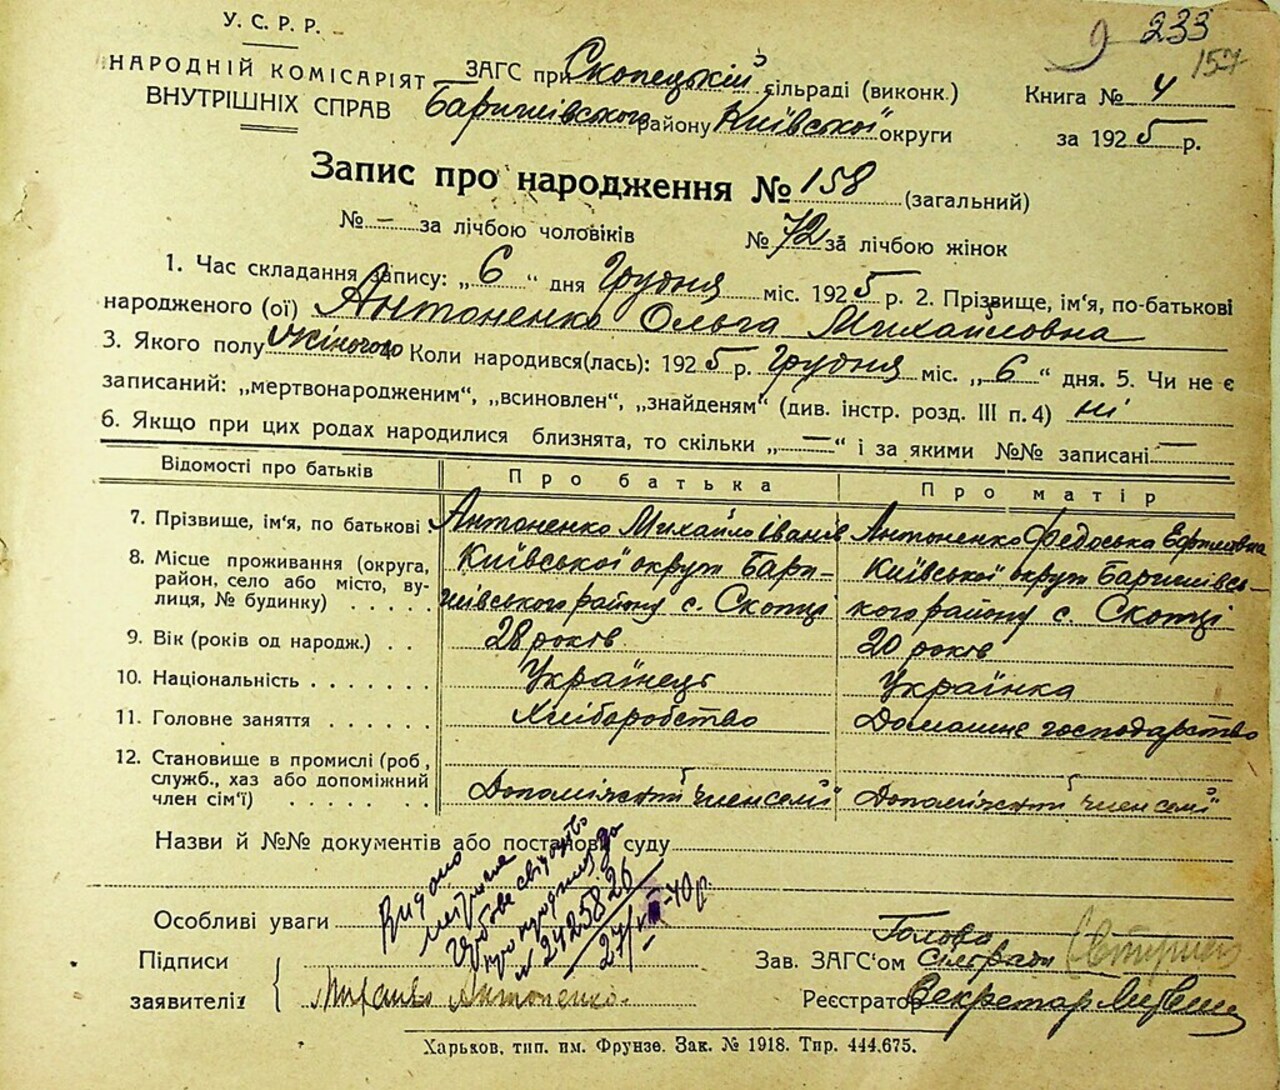 У.С.Р.Р.
9 233
157
НАРОДНІЙ КОМІСАРІЯТ
ВНУТРІШНІХ СПРАВ
ЗАГС при Скопецькій сільраді (виконк.)
Баришівського району Київської округи
Книга № 4
за 1925 р.
Запис про народження № 158 (загальний)
№ – за лічбою чоловіків № 72 за лічбою жінок
1. Час складання запису: „6“ дня Грудня міс. 1925 р. 2. Прізвище, ім'я, по-батькові
народженого (ої) Антоненко Ольга Михайловна
3. Якого полу жіночого Коли народився(лась): 1925 р. Грудня міс. „6“ дня. 5. Чи не є
записаний: „мертвонародженим“, „всиновлен“, „знайденям“ (див. інстр. розд. III п. 4) ні
6. Якщо при цих родах народилися близнята, то скільки „—“ і за якими №№ записані —
Відомості про батьків Про батька Про матір
7. Прізвище, ім'я, по батькові . Антоненко Михайло Іванів Антоненко Федоська Ефимовна
8. Місце проживання (округа, Київської округи Бари- Київської округи Баришівсь-
район, село або місто, ву-
лиця, № будинку) ..... шівського району с. Скопці кого району с. Скопці
9. Вік (років од народж.) .. 28 років 20 років
10. Національність ....... Українець Українка
11. Головне заняття ...... Хліборобство Домашнє господарство
12. Становище в промислі (роб,
служб., хаз або допоміжний
член сім'ї) ...... Допоміжний член семї Допоміжний член семї
Назви й №№ документів або постанови суду
Видано
повторне
свідоцтво
про народження
№ 2425826
27/VIII-40 р.
Особливі уваги
Підписи
заявителів Михайло Антоненко.
Голова
Зав. ЗАГС'ом Сілради
Реєстратор Секретар
Харьков, тип. им. Фрунзе. Зак. № 1918. Тир. 444.675.